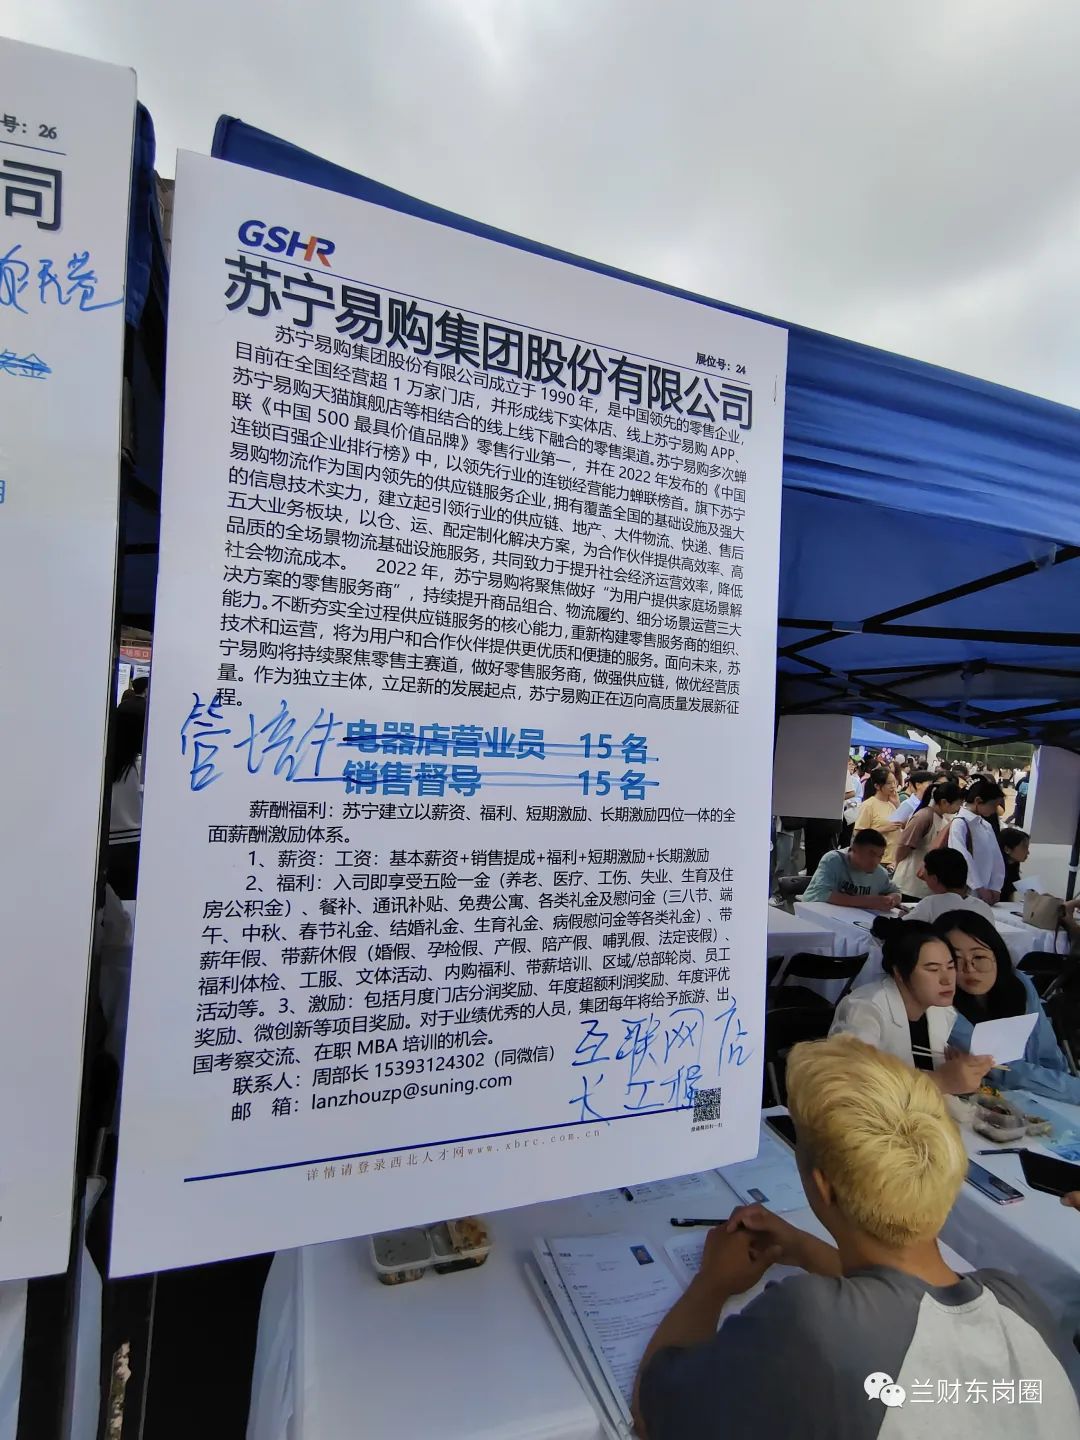 号：26
司
GSHR
苏宁易购集团股份有限公司
展位号：24
苏宁易购集团股份有限公司成立于 1990 年，是中国领先的零售企业，
目前在全国经营超 1 万家门店，并形成线下实体店、线上苏宁易购 APP、
苏宁易购天猫旗舰店等相结合的线上线下融合的零售渠道。苏宁易购多次蝉
联《中国 500 最具价值品牌》零售行业第一，并在 2022 年发布的《中国
连锁百强企业排行榜》中，以领先行业的连锁经营能力蝉联榜首。旗下苏宁
易购物流作为国内领先的供应链服务企业，拥有覆盖全国的基础设施及强大
的信息技术实力，建立起引领行业的供应链、地产、大件物流、快递、售后
五大业务板块，以仓、运、配定制化解决方案，为合作伙伴提供高效率、高
品质的全场景物流基础设施服务，共同致力于提升社会经济运营效率，降低
社会物流成本。 2022 年，苏宁易购将聚焦做好“为用户提供家庭场景解
决方案的零售服务商”，持续提升商品组合、物流履约、细分场景运营三大
能力。不断夯实全过程供应链服务的核心能力，重新构建零售服务商的组织、
技术和运营，将为用户和合作伙伴提供更优质和便捷的服务。面向未来，苏
宁易购将持续聚焦零售主赛道，做好零售服务商，做强供应链，做优经营质
量。作为独立主体，立足新的发展起点，苏宁易购正在迈向高质量发展新征
程。
管培生
电器店营业员 15 名
销售督导 15 名
薪酬福利：苏宁建立以薪资、福利、短期激励、长期激励四位一体的全
面薪酬激励体系。
1、薪资：工资：基本薪资+销售提成+福利+短期激励+长期激励
2、福利：入司即享受五险一金（养老、医疗、工伤、失业、生育及住
房公积金）、餐补、通讯补贴、免费公寓、各类礼金及慰问金（三八节、端
午、中秋、春节礼金、结婚礼金、生育礼金、病假慰问金等各类礼金）、带
薪年假、带薪休假（婚假、孕检假、产假、陪产假、哺乳假、法定丧假）、
福利体检、工服、文体活动、内购福利、带薪培训、区域/总部轮岗、员工
活动等。3、激励：包括月度门店分润奖励、年度超额利润奖励、年度评优
奖励、微创新等项目奖励。对于业绩优秀的人员，集团每年将给予旅游、出
国考察交流、在职 MBA 培训的机会。
联系人：周部长 15393124302（同微信）
邮 箱：lanzhouzp@suning.com
互联网店
长工程
详情请登录西北人才网www.xbrc.com.cn
兰财东岗圈